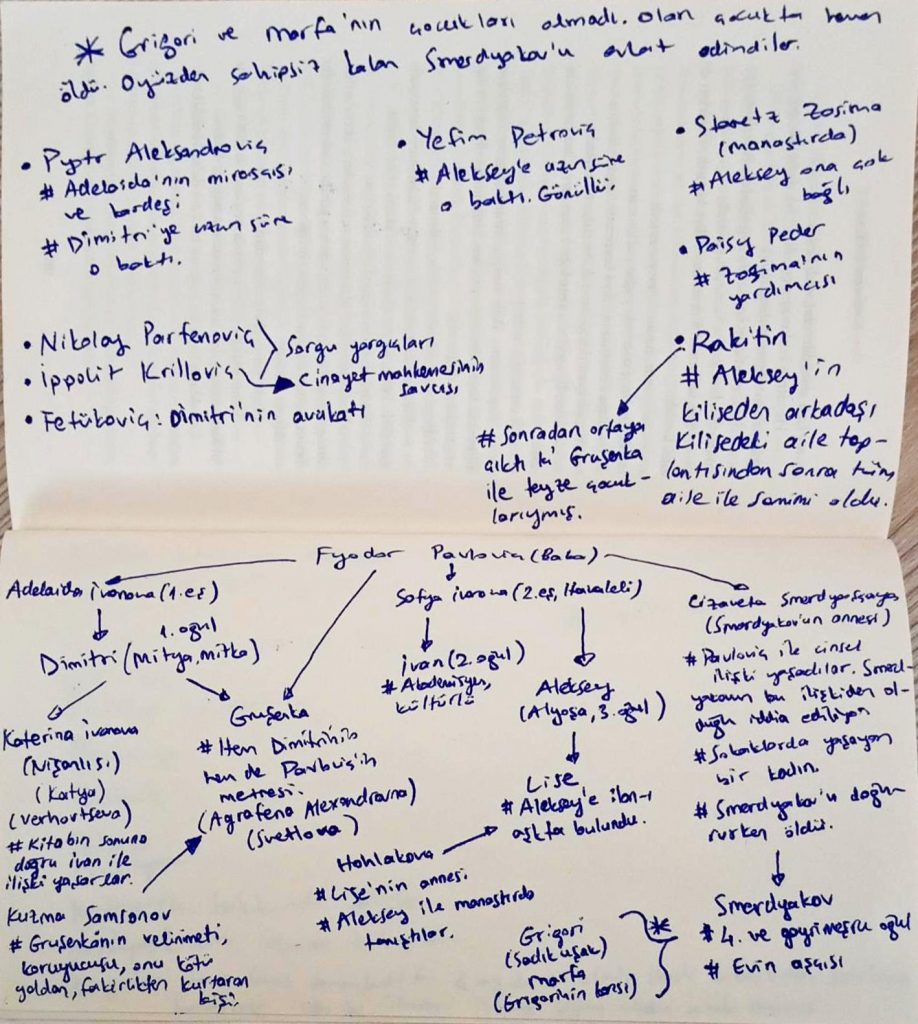 * Grigori ve Marfa'nın çocukları olmadı. Olan çocukta hemen
öldü. O yüzden sahipsiz kalan Smerdyakov'u evlat edindiler.
• Pyotr Aleksandroviç
# Adelaida'nın mirasçısı
ve kardeşi
# Dimitri'ye uzun süre
o baktı.
• Yefim Petroviç
# Aleksey'e uzun süre
o baktı. Gönüllü.
• Staretz Zosima
(manastırda)
# Aleksey ona çok
bağlı
• Paisy Peder
# Zosima'nın
yardımcısı
• Nikolay Parfenoviç
• İppolit Krilloviç
Sorgu yargıçları
Cinayet mahkemesinin
savcısı
• Fetükoviç: Dimitri'nin avukatı
• Rakitin
# Aleksey'in
kiliseden arkadaşı
Kilisedeki aile top-
lantısından sonra tüm
aile ile samimi oldu.
# Sonradan ortaya
çıktı ki Gruşenka
ile teyze çocuk-
larıymış.
Fyodor Pavloviç (Baba)
Adelaida ivanovna (1.eş)
1. oğul
Dimitri (Mitya, mitka)
Katerina ivanovna
(Nişanlısı)
(Katya)
(Verhovtseva)
# Kitabın sonuna
doğru ivan ile
ilişki yaşarlar.
Kuzma Samsonov
# Gruşenkanın velinimeti,
koruyucusu, onu kötü
yoldan, fakirlikten kurtaran
kişi.
Gruşenka
# Hem Dimitrinin
hem de Pavloviç'in
metresi.
(Agrafena Alexandravna)
(Svetlova)
Sofya ivanovna (2.eş, Havaleli)
ivan (2. oğul)
# Akademisyen,
kültürlü
Aleksey
(Alyoşa, 3. oğul)
Lise
# Aleksey'e ilan-ı
aşkta bulundu.
Hohlakova
# Lise'nin annesi
# Aleksey ile manastırda
tanıştılar.
Grigori
(Sadık uşak)
Marfa
(Grigorinin karısı)
*
Lizaveta Smerdyaşçaya
(Smerdyakov'un annesi)
# Pavloviç ile cinsel
ilişki yaşadılar. Smerd-
yakovun bu ilişkiden ol-
duğu iddia ediliyor
# Sokaklarda yaşayan
bir kadın.
# Smerdyakov'u doğu-
rurken öldü.
Smerdyakov
# 4. ve gayrimeşru oğul
# Evin aşçısı